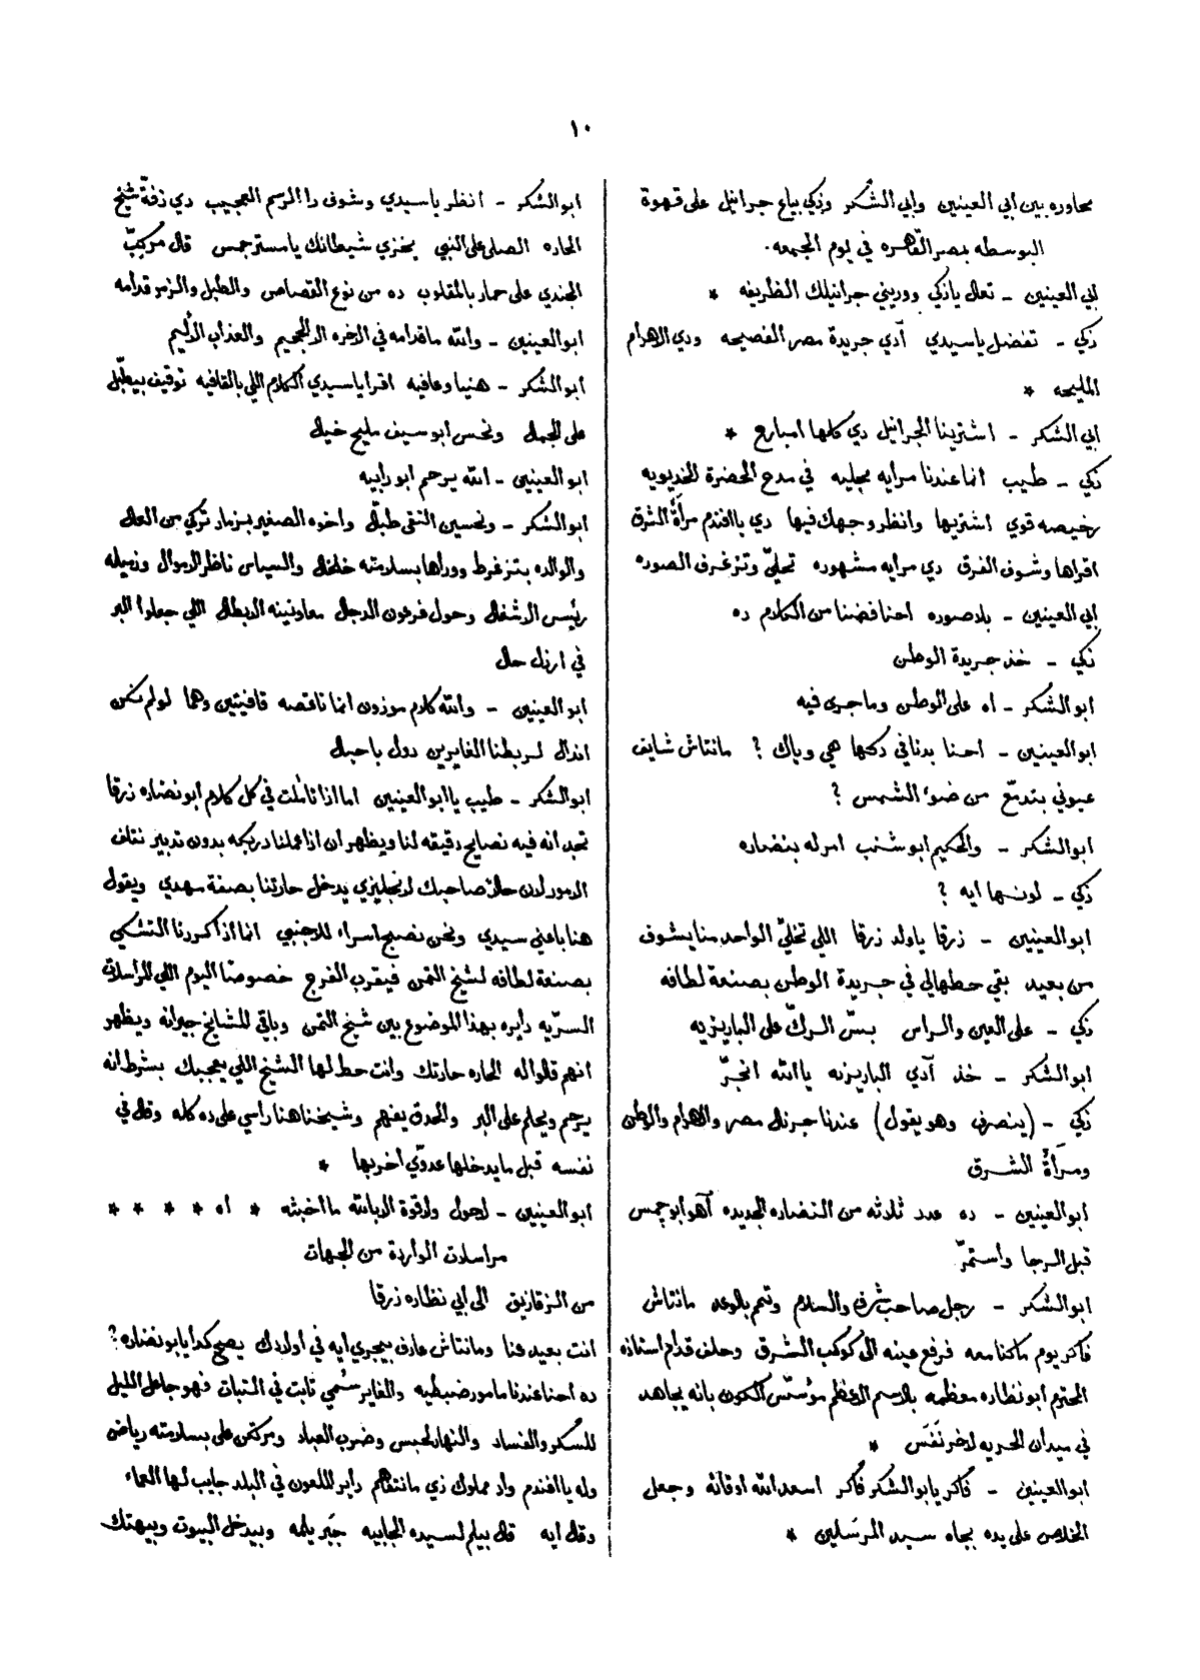 ١٠
محاوره بين ابي العينين وابي الشكر وزكي بياع جرانيل على قهوة
البوسطه بمصر القاهره في يوم الجمعه.
ابي العينين ـ تعال يا زكي ووريني جرانيلك الظريفه *
زكي ـ تفضل يا سيدي آدي جريدة مصر الفصيحه ودي الاهرام
المليحه *
ابي الشكر ـ اشترينا الجرانيل دي كلها امبارع *
زكي ـ طيب انما عندنا مرايه مجليه في مدح الحضرة الخديويه
رخيصه قوي اشتريها وانظر وجهك فيها دي يا افندم مرأة الشرق
اقراها وشوف الفرق دي مرايه مشهوره تحليّ وتزغرف الصوره
ابي العينين ـ بلا صوره احنا فضنا من الكلام ده
زكي ـ خذ جريدة الوطن
ابو الشكر ـ اه على الوطن وما جرى فيه
ابو العينين ـ احنا بدنا في دكها هي وياك ؟ مانتاش شايف
عيوني بتدمّع من ضوء الشمس ؟
ابو الشكر ـ والحكيم ابو شنب امر له بنضاره
زكي ـ لونها ايه ؟
ابو العينين ـ زرقا يا ولد زرقا اللي تخليّ الواحد منا يشوف
من بعيد بقي حطها لي في جريدة الوطن بصنعة لطافه
زكي ـ على العين والراس بسّ الركّ على الباريزيه
ابو الشكر ـ خذ آدي الباريزيه يا الله انجرّ
زكي ـ (ينصرف وهو يقول) عندنا جرنل مصر والاهرام والوطن
ومرأة الشرق
ابو العينين ـ ده عدد ثلاثه من النضاره الجديده آهو ابو جمس
قبل الرجا واستمرّ
ابو الشكر ـ رجل صاحب شرف والسلام وتمم بالوعد مانتاش
فاكر يوم ما كنا معه فرفع عينه الى كوكب الشرق وحلف قدام استاذه
المحترم ابو نظاره معظمه بالاسم الاعظم مؤسّس الكون بانه يجاهد
في ميدان الحريه لاخر نَفَس *
ابو العينين ـ فاكر يا ابو الشكر فاكر اسعد الله اوقاته وجعل
الخلاص على يده بجاه سيد المرسلين *
ابو الشكر ـ انظر يا سيدي وشوف دا الرسم العجيب دي زفة شيخ
الحاره الصلى على النبي يخزي شيطانك يا مستر جمس قال مركبّ
الجندي على حمار بالمقلوب ده من نوع القصاص والطبل والزمر قدامه
ابو العينين ـ والله ما قدامه في الاخره الا الجحيم والعذاب الأليم
ابو الشكر ـ هنيا وعافيه اقرا يا سيدي الكلام اللي بالقافيه توفيف بيطبّل
على الجمل ونحس ابو سيف مليح خيل
ابو العينين ـ الله يرحم ابو رابيه
ابو الشكر ـ ونحسين النقى طبل واخوه الصغير بزمار تركي من العال
والوالده بتزغرط ووراها بسلامته خلخال والسياس ناظر الاموال وزميله
رئيس الاشغال وحول فرعون الدجل معاونينه الابطال اللي جعلوا البر
في ارذل حال
ابو العينين ـ والله كلام موزون انما ناقصه قافيتين وهما لو لم نكن
انذال لربطنا الغايرين دول باحبال
ابو الشكر ـ طيب يا ابو العينين اما اذا تأملت في كل كلام ابو نضاره زرقا
تجد انه فيه نصايح دقيقه لنا ويظهر ان اذا عملنا دربكه بدون تدبير نتلف
الامور لان حالاً صاحبك الانجليزي يدخل حارتنا بصفة مهدي ويقول
هنا باعني سيدي ونحن نصبح اسراء للاجنبي انما اذا كررنا التشكي
بصنعة لطافه لشيخ التمن فيقرب الفرج خصوصاً اليوم اللي المراسلات
السرّيه دايره بهذا الموضوع بين شيخ التمن وباقي المشايخ جيرانه ويظهر
انهم قالوا له الحاره حارتك وانت حط لها الشيخ اللي يعجبك بشرط انه
يرحم ويحلم على البر والحدق يفهم وشيخنا هنا راسي على ده كله وقال في
نفسه قبل ما يدخلها عدوّي أخربها *
ابو العينين ـ لا حول ولا قوة الا بالله ما اخبثه * اه * * * *
مراسلات الواردة من الجهات
من الزقازيق الى أبي نظاره زرقا
انت بعيد عنا ومانتاش عارف بيجري ايه في أولادك يصح كدا يا بو نضاره؟
ده أحنا عندنا مامور ضبطيه والغاير سُمي ثابت في الثبات فهو جاعل الليل
للسكر والفساد والنهار لحبس وضرب العباد ومركن على بسلامته رياض
وله يا افندم واد مملوك زي مانتفاهم داير الملعون في البلد جايب لها العماء
وقال ايه قال بيلم لسيده الجابيه جَبَر يلمه وبيدخل البيوت وبيهتك